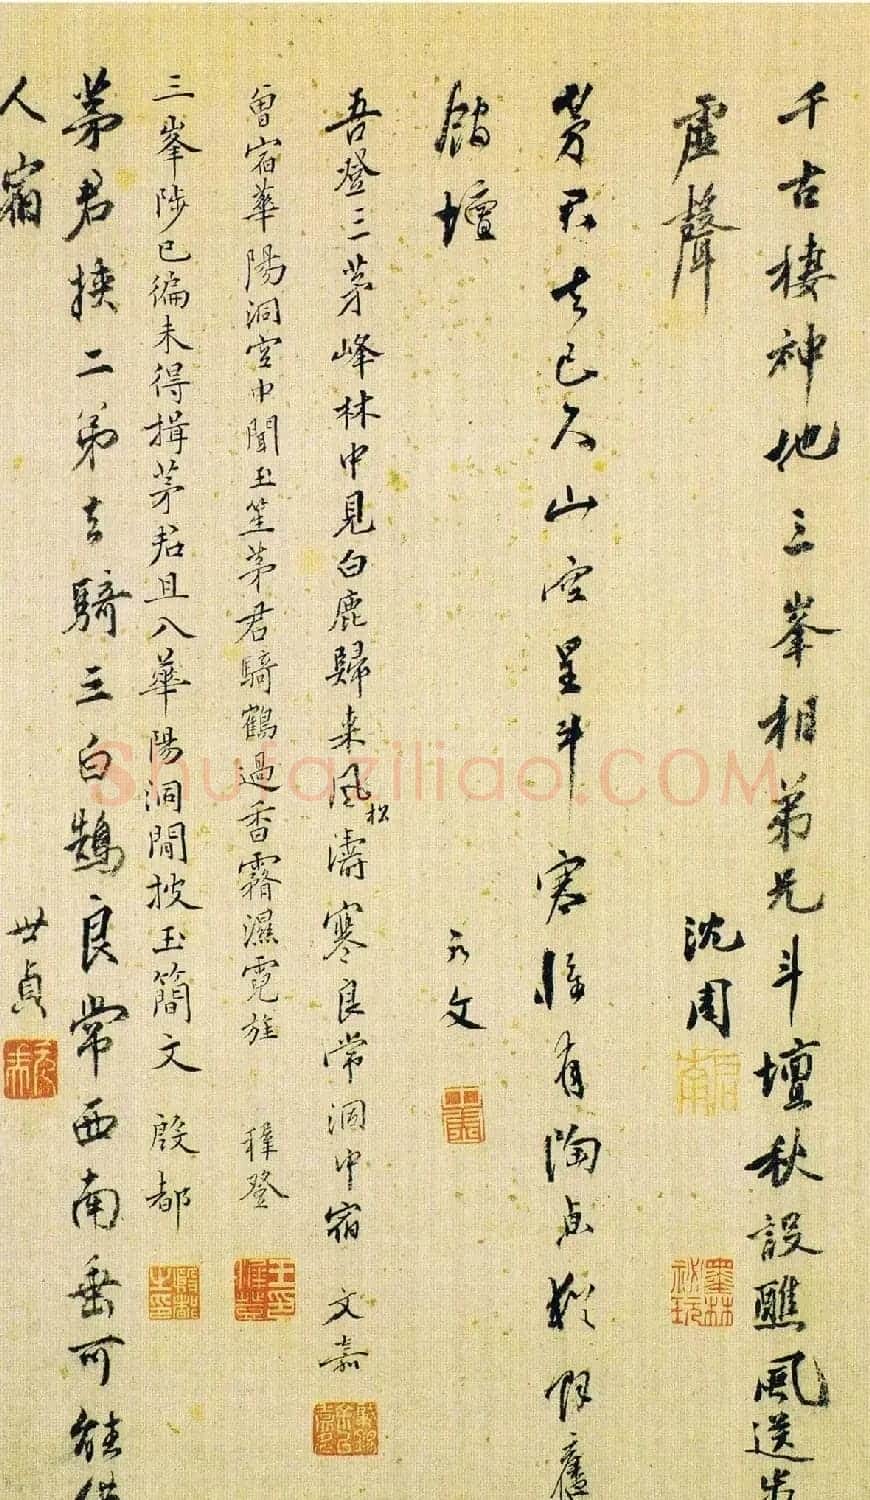 千古棲神地三峯相弟兄斗壇秋設醮風送步
虛聲
沈周
茅君去已久山空星斗寒惟有陶貞 舊
館壇
允文
吾登三茅峰林中見白鹿歸來風松濤寒良常洞中宿 文嘉
曾宿華陽洞宮中聞玉笙茅君騎鶴過香霧濕霓旌 穉登
三峯陟已徧未得揖茅君且入華陽洞閒披玉簡文 殷都
茅君挾二弟去騎三白鵠良常西南垂可能借
人宿
世貞
shufaziliao.COM